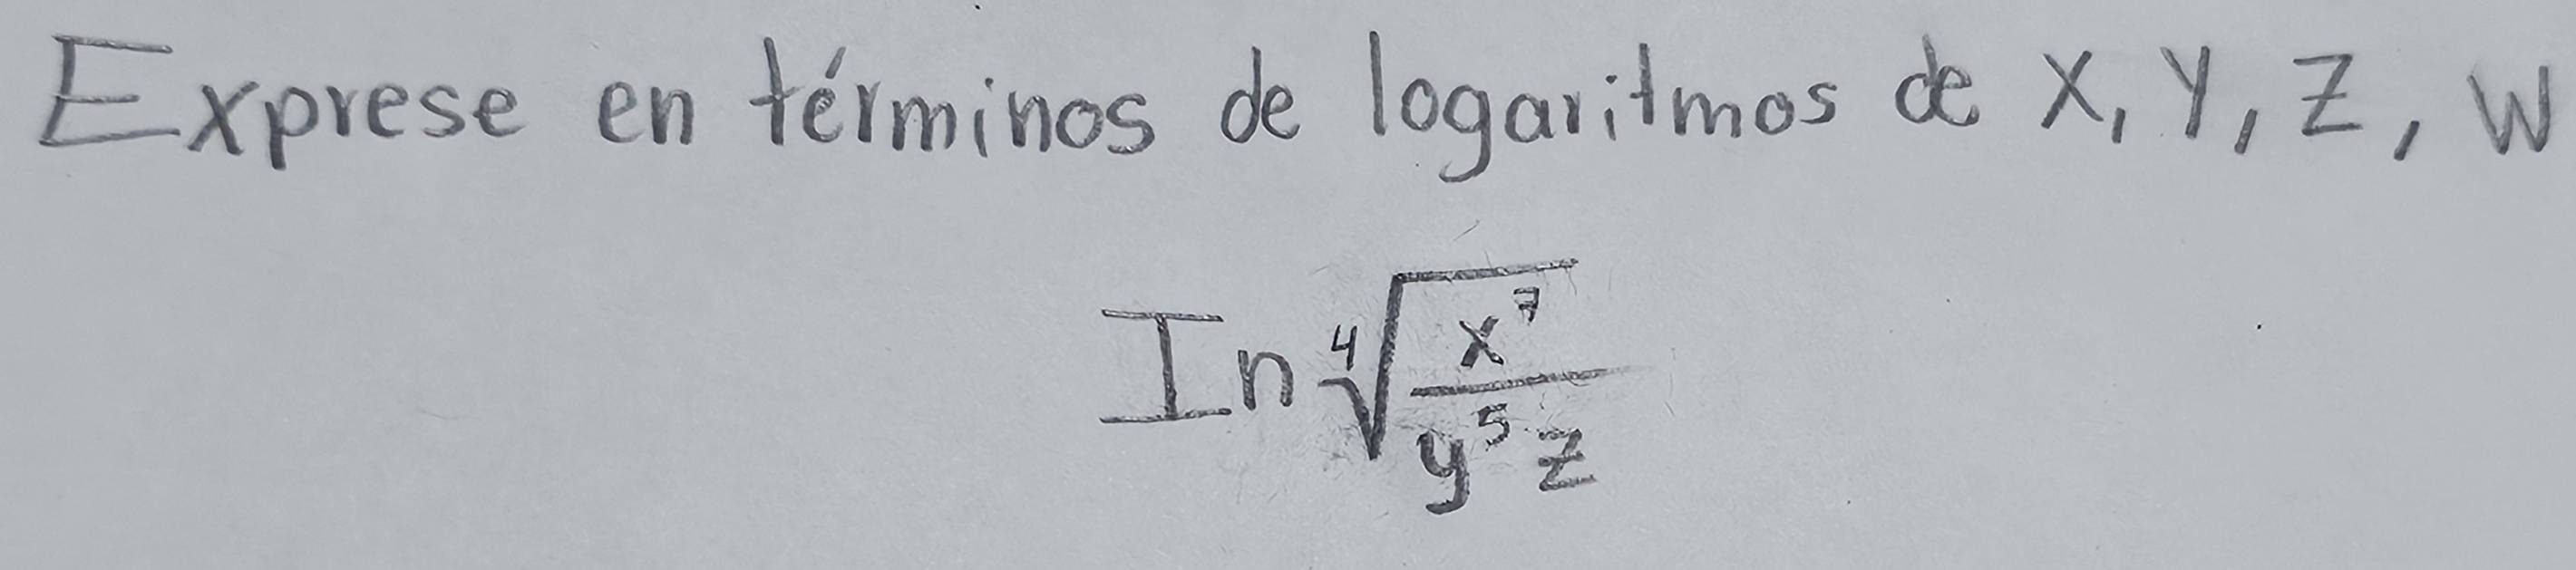 Exprese en términos de logaritmos de X, Y, Z, W
In ∜(x⁷/(y⁵z))